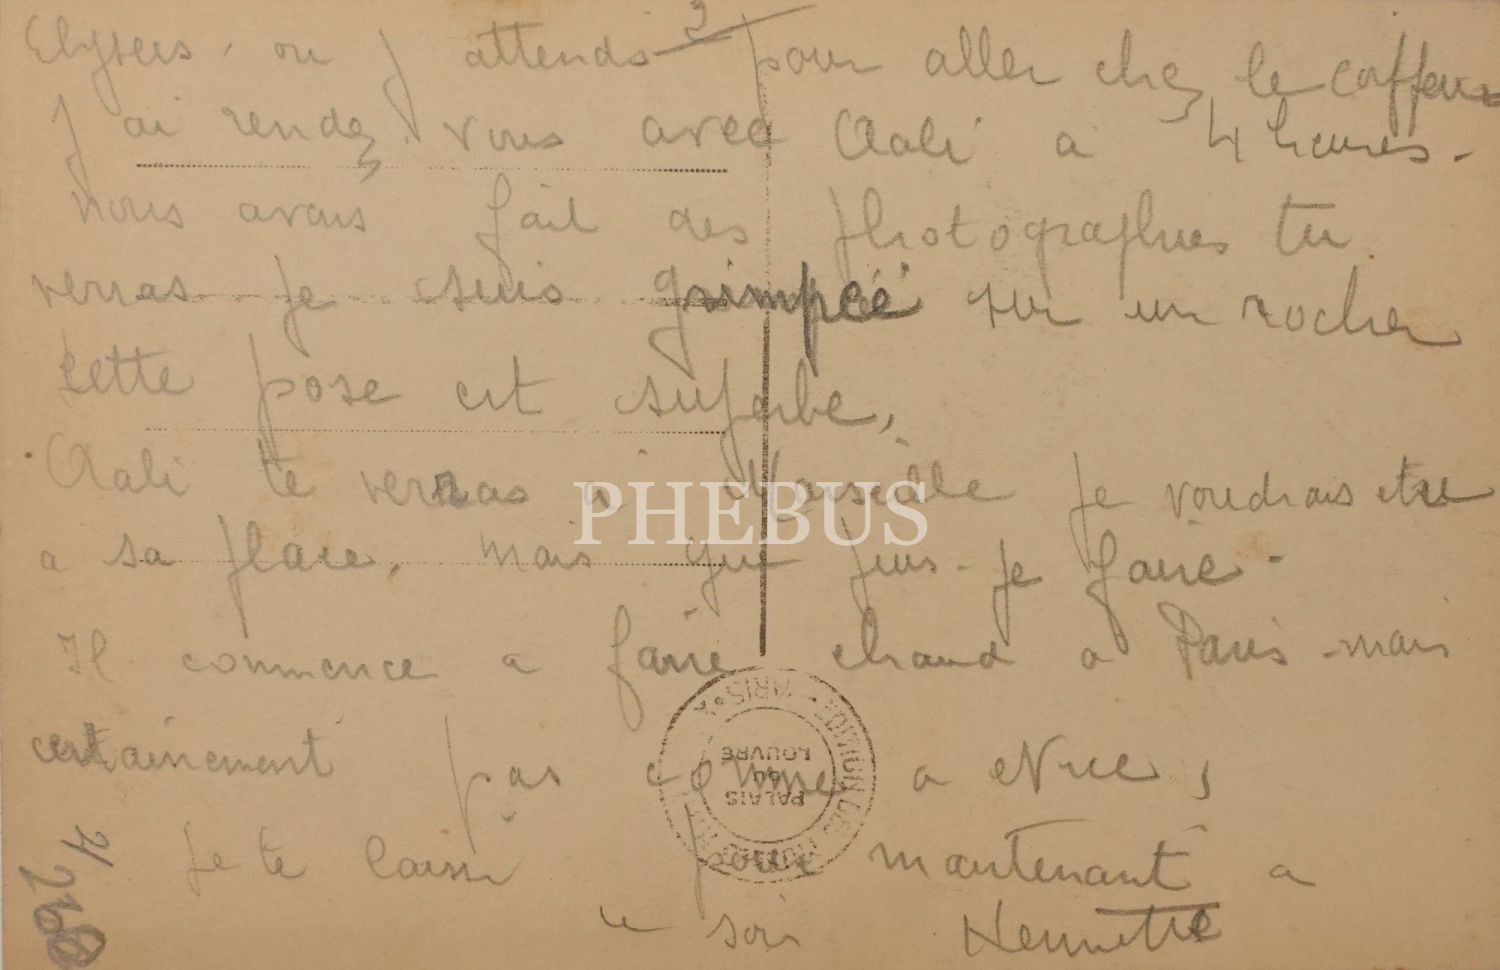 2
Elysees. ou j attends pour aller chez le coiffeur
J ai rendez vous avec Aali à 4 heures.
nous avons fait des photographies tu
verras je suis grimpéé sur un rocher
cette pose est superbe,
Aali te verras à Marseille je voudrais etre
a sa place, mais que puis-je faire.
Il commence a faire chaud a Paris mais
certainement pas comme a Nice,
Je te laisse pour maintenant a
ce soir Henriette
PHEBUS
PALAIS
LOUVRE
PARIS